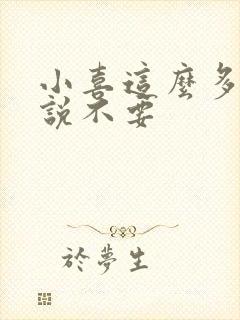 小喜這麼多
說不要
於夢生